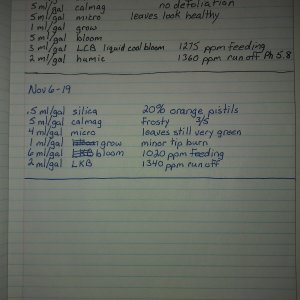 5 ml/gal calmag no defoliation
5 ml/gal micro leaves look healthy
1 ml/gal grow
5 ml/gal bloom
3 ml/gal LCB liquid cool bloom 1275 ppm feeding
2 ml/gal humic 1360 ppm run off Ph 5.8
Nov 6-19
.5 ml/gal silica 20% orange pistils
5 ml/gal calmag frosty 3/5
4 ml/gal micro leaves still very green
1 ml/gal grow minor tip burn
6 ml/gal bloom 1020 ppm feeding
2 ml/gal LKB 1340 ppm run off